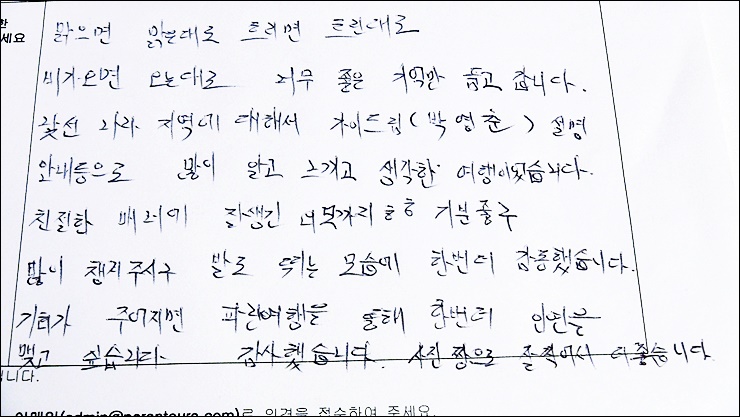 한
세요
맑으면 맑은대로 흐리면 흐린대로
비가오면 오는대로 너무 좋은 기억만 품고 갑니다.
낯선 나라 지역에 대해서 가이드님(박영춘) 설명
안내등으로 많이 알고 느끼고 생각한 여행이었습니다.
친절한 배려에 잘생긴 ㅎㅎ 기분좋구
많이 챙겨주시구 발로 뛰는 모습에 한번더 감동했습니다.
기회가 주어지면 파란여행을 통해 한번더 인연을
맺고 싶습니다 감사했습니다. 사진 짱으로 잘찍어서 더좋습니다
니다.
이메일(admin@parantours.com)로 의견을 접수하여 주세요.